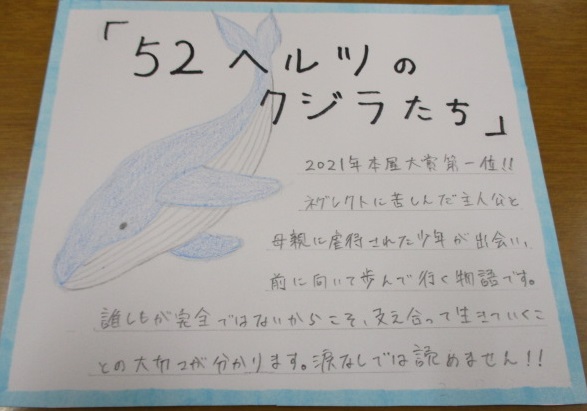 「52ヘルツの
クジラたち」
2021年本屋大賞第一位!!
ネグレクトに苦しんだ主人公と
母親に虐待された少年が出会い、
前に向いて歩んで行く物語です。
誰しもが完全ではないからこそ、支え合って生きていくこ
との大切さが分かります。涙なしでは読めません!!